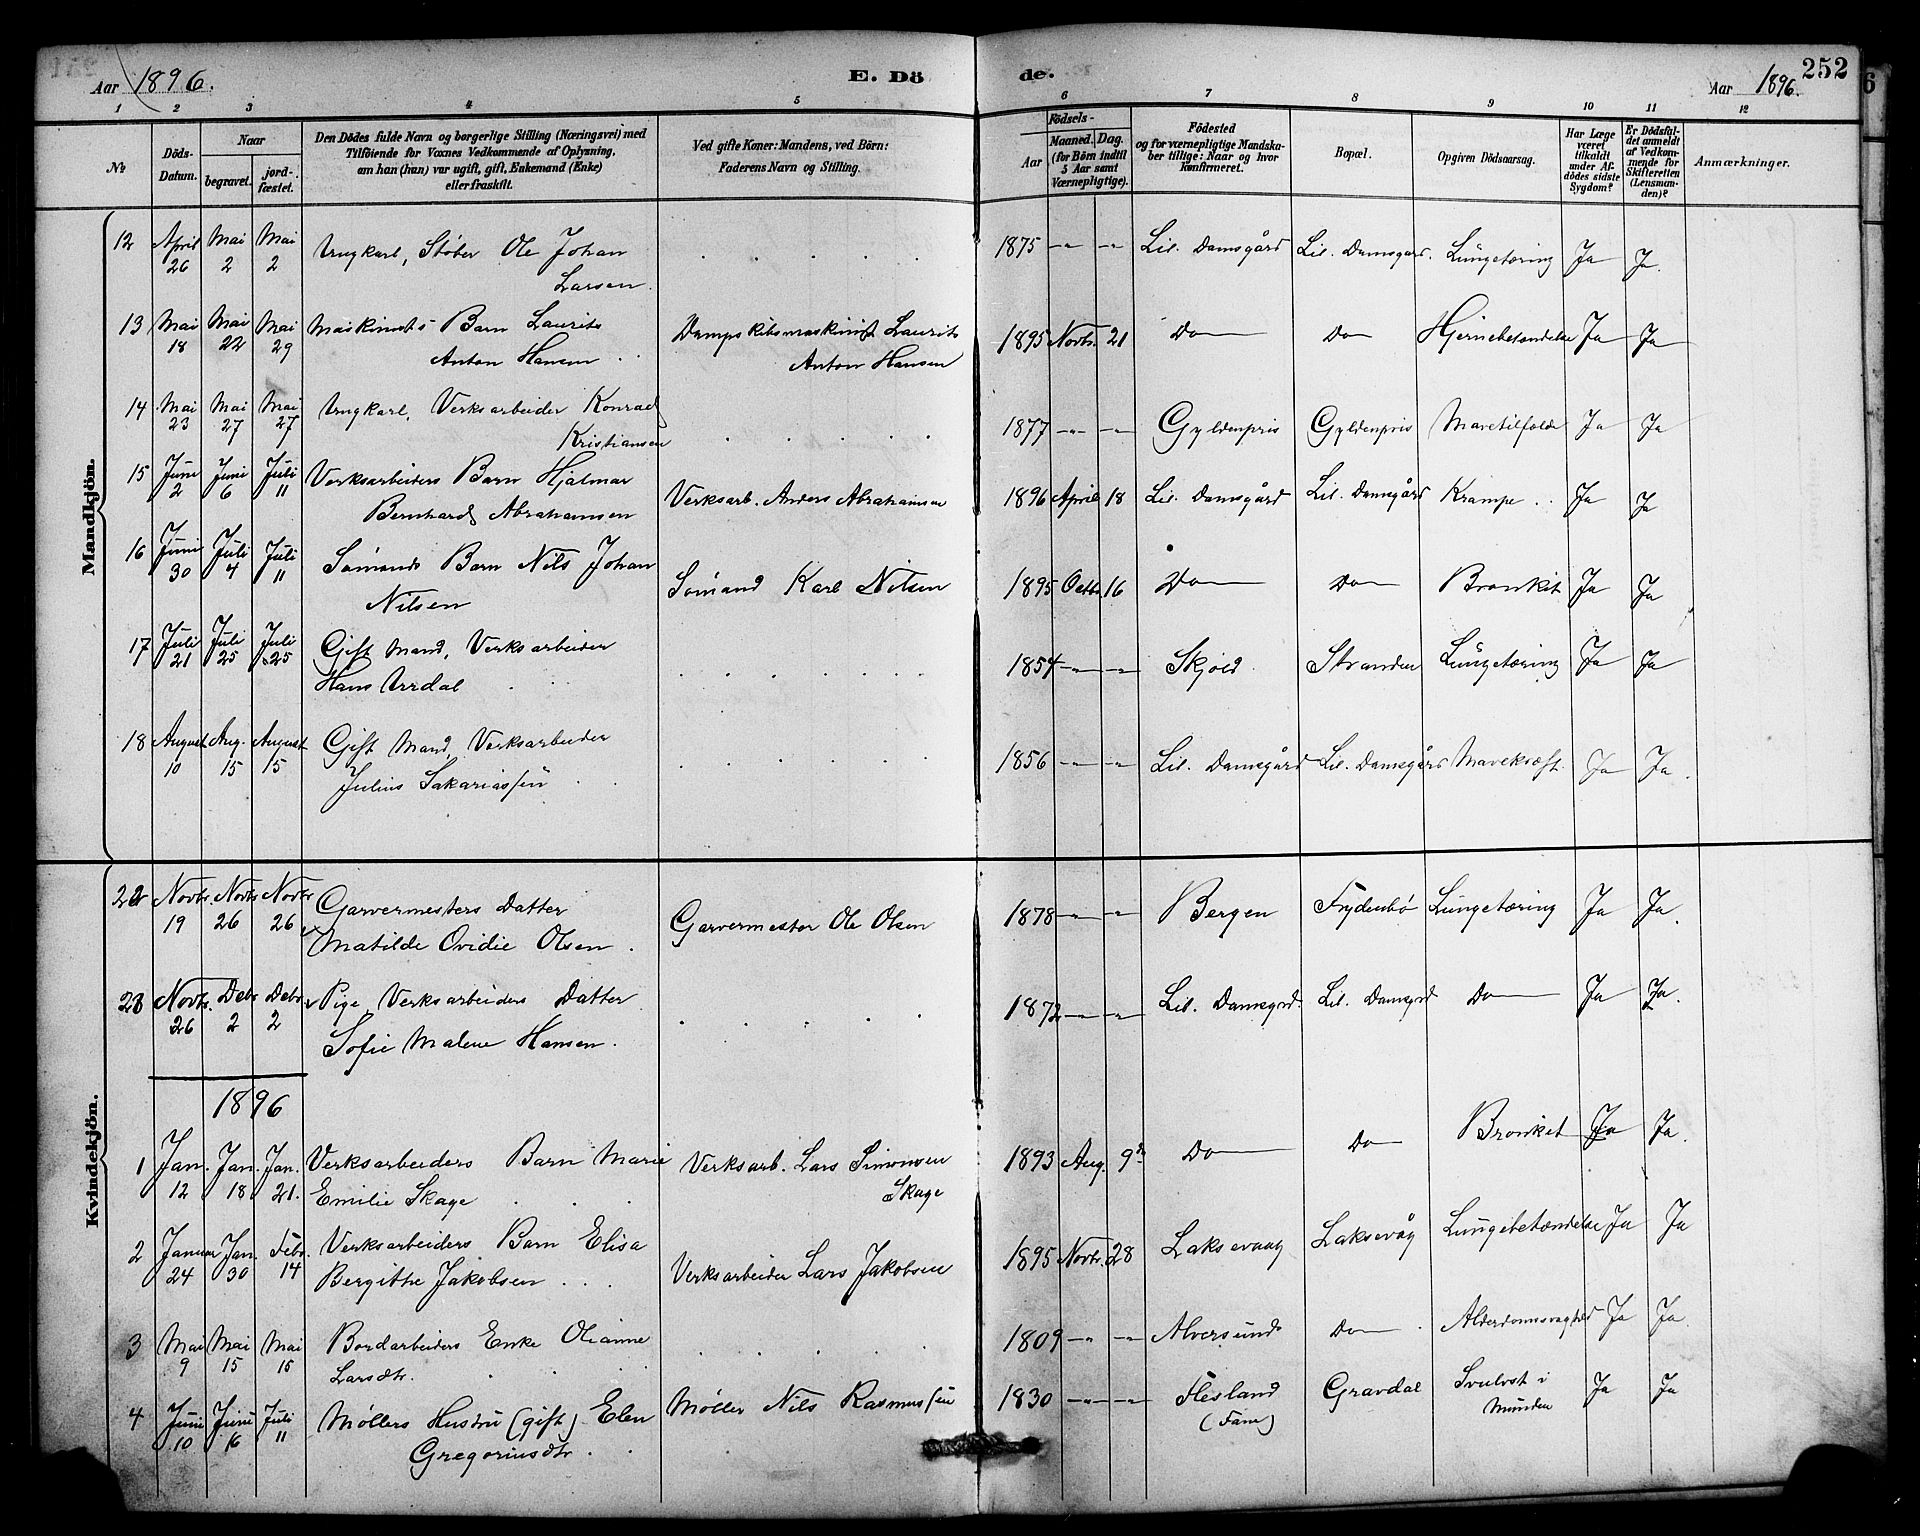 Aar 1896. E. Dö de. Aar 1896. 252
1 2 3 4 5 6 7 8 9 10 11 12
No
Döds-Datum.
Naar
begravet.
jord-fæstet.
Den Dödes fulde Navn og borgerlige Stilling (Næringsvei) med
Tilföiende for Voxnes Vedkommende af Oplysning,
om han (hun) var ugift, gift, Enkemand (Enke)
eller fraskilt.
Ved gifte Koner: Mandens, ved Börn:
Faderens Navn og Stilling.
Födsels-
Aar
Maaned. Dag.
(for Börn indtil
5 Aar samt
Værnepligtige).
Födested
og for værnepligtige Mandska-
ber tillige: Naar og hvor
Konfirmeret.
Bopæl.
Opgiven Dödsaarsag.
Har Læge
været
tilkaldt
under Af-
dödes sidste
Sygdom?
Er Dödsfal-
det anmeldt
af Vedkom-
mende for
Skifteretten
(Lensman-
den)?
Anmærkninger.
Mandkjön.
12 April 26 Mai 2 Mai 2 Ungkarl, Støber Ole Johan
Larsen. 1875 -"- -"- Lil. Damsgård Lil. Damsgård. Lungetæring Ja Ja.
13 Mai 18 Mai 22 Mai 29 Maskinists Barn Laurits
Anton Hansen Dampskibsmaskinist Laurits
Anton Hansen 1895 Novbr. 21 Do Do Hjernebetændelse Ja Ja
14 Mai 23 Mai 27 Mai 27 Ungkarl, Verksarbeider Konrad
Kristiansen 1877 -"- -"- Gyldenpris Gyldenpris Mavetilfælde Ja Ja
15 Juni 2 Juni 6 Juli 11 Verksarbeiders Barn Hjalmar
Bernhard Abrahamsen Verksarb. Anders Abrahamsen 1896 April 18 Lil. Damsgård Lil. Damsgård Krampe Ja Ja
16 Juni 30 Juli 4 Juli 11 Sømands Barn Nils Johan
Nilsen Sømand Karl Nilsen 1895 Octbr. 16 Do Do Bronkit Ja Ja
17 Juli 21 Juli 25 Juli 25 Gift Mand, Verksarbeider
Hans Urdal 1854 -"- -"- Skjold Stranden Lungetæring Ja Ja
18 August 10 Aug. 15 August 15 Gift Mand, Verksarbeider
Julius Sakariassen 1856 -"- -"- Lil. Damsgård Lil. Damsgård Mavekræft Ja Ja.
Kvindekjön.
22 Novbr. 19 Novbr. 26 Novbr. 26 Garvermesters Datter
Matilde Ovidie Olsen. Garvermester Ole Olsen 1878 -"- -"- Bergen Frydenbø Lungetæring Ja Ja.
23 Novbr. 26 Debr 2 Debr 2 Pige, Verksarbeiders Datter
Sofie Malene Hansen. 1872 -"- -"- Lil. Damsgrd. Lil. Damsgrd Do Ja Ja.
1896
1 Jan. 12 Jan. 18 Jan. 21. Verksarbeiders Barn Marie
Emilie Skage Verksarb. Lars Simonsen
Skage 1893 Aug. 9 Do Do Bronkit Ja Ja.
2 Januar 24 Jan. 30 Febr. 14 Verksarbeiders Barn Elisa
Bergithe Jakobsen Verksarbeider Lars Jakobsen 1895 Novbr. 28 Laksevaag Laksevåg Lungebetændelse Ja Ja
3 Mai 9 Mai 15 Mai 15 Bordarbeiders Enke Olianne
Larsdtr. 1809 -"- -"- Alversund Do Alderdomsvaghed Ja Ja.
4 Juni 10 Juni 16 Juli 11 Møllers Hustru (gift) Elen
Gregoriusdtr. Møller Nils Rasmussen 1830 -"- -"- Flesland
(Fane) Gravdal Svulst i
Munden Ja Ja